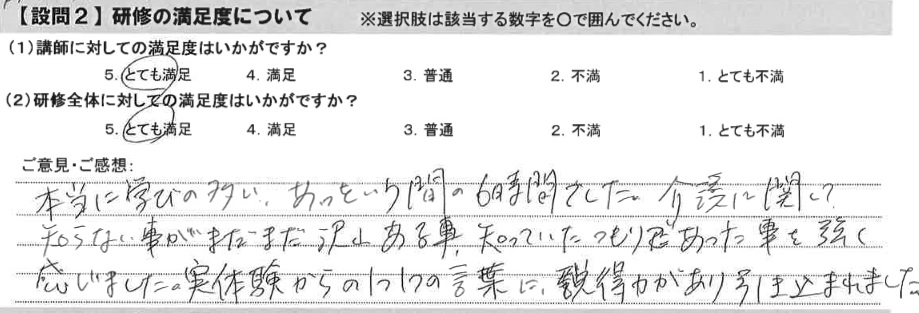 【設問２】研修の満足度について　※選択肢は該当する数字を〇で囲んでください。
(1)講師に対しての満足度はいかがですか？
5. とても満足　4. 満足　3. 普通　2. 不満　1. とても不満
(2)研修全体に対しての満足度はいかがですか？
5. とても満足　4. 満足　3. 普通　2. 不満　1. とても不満
ご意見・ご感想:
本当に学びの多い、あっという間の6時間でした。介護に関して
知らない事がまだまだ沢山ある事、知っていたつもりであった事を強く
感じました。実体験からの1つ1つの言葉に、説得力があり引き込まれました。